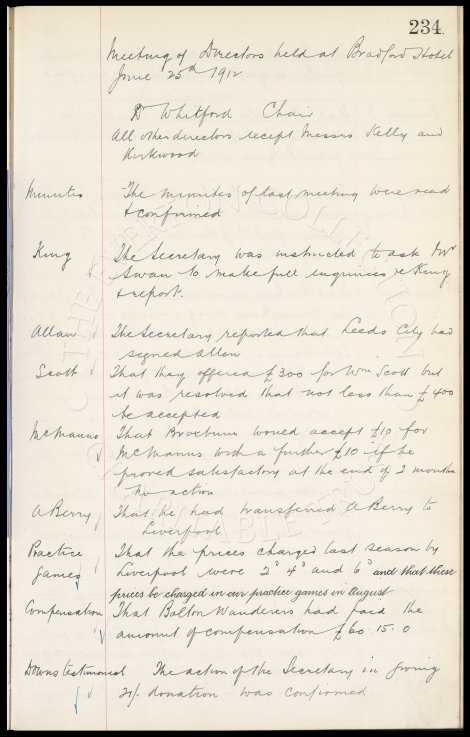 234.
Meeting of Directors held at Bradford Hotel
June 25th 1912
Dr Whitford Chair
All other directors except Messrs Kelly and
Kirkwood
Minutes The minutes of last meeting were read
& confirmed
King The Secretary was instructed to ask Mr
Swan to make full enquiries re King
& report.
Allan The Secretary reported that Leeds City had
signed Allan
Scott That they offered £300 for Wm Scott but
it was resolved that not less than £400
be accepted
McManus That Broxburn would accept £10 for
McManus with a further £10 if he
proved satisfactory at the end of 2 months.
No action
A Berry That he had transferred A Berry to
Liverpool
Practice That the prices charged last season by
Games Liverpool were 2d 4d and 6d and that these
prices be charged in our practice games in August
Compensation That Bolton Wanderers had paid the
amount of compensation £60.15.0
Downs testimonial The action of the Secretary in giving
21/- donation was confirmed.
THE EVERTON COLLECTION
CHARITABLE TRUST